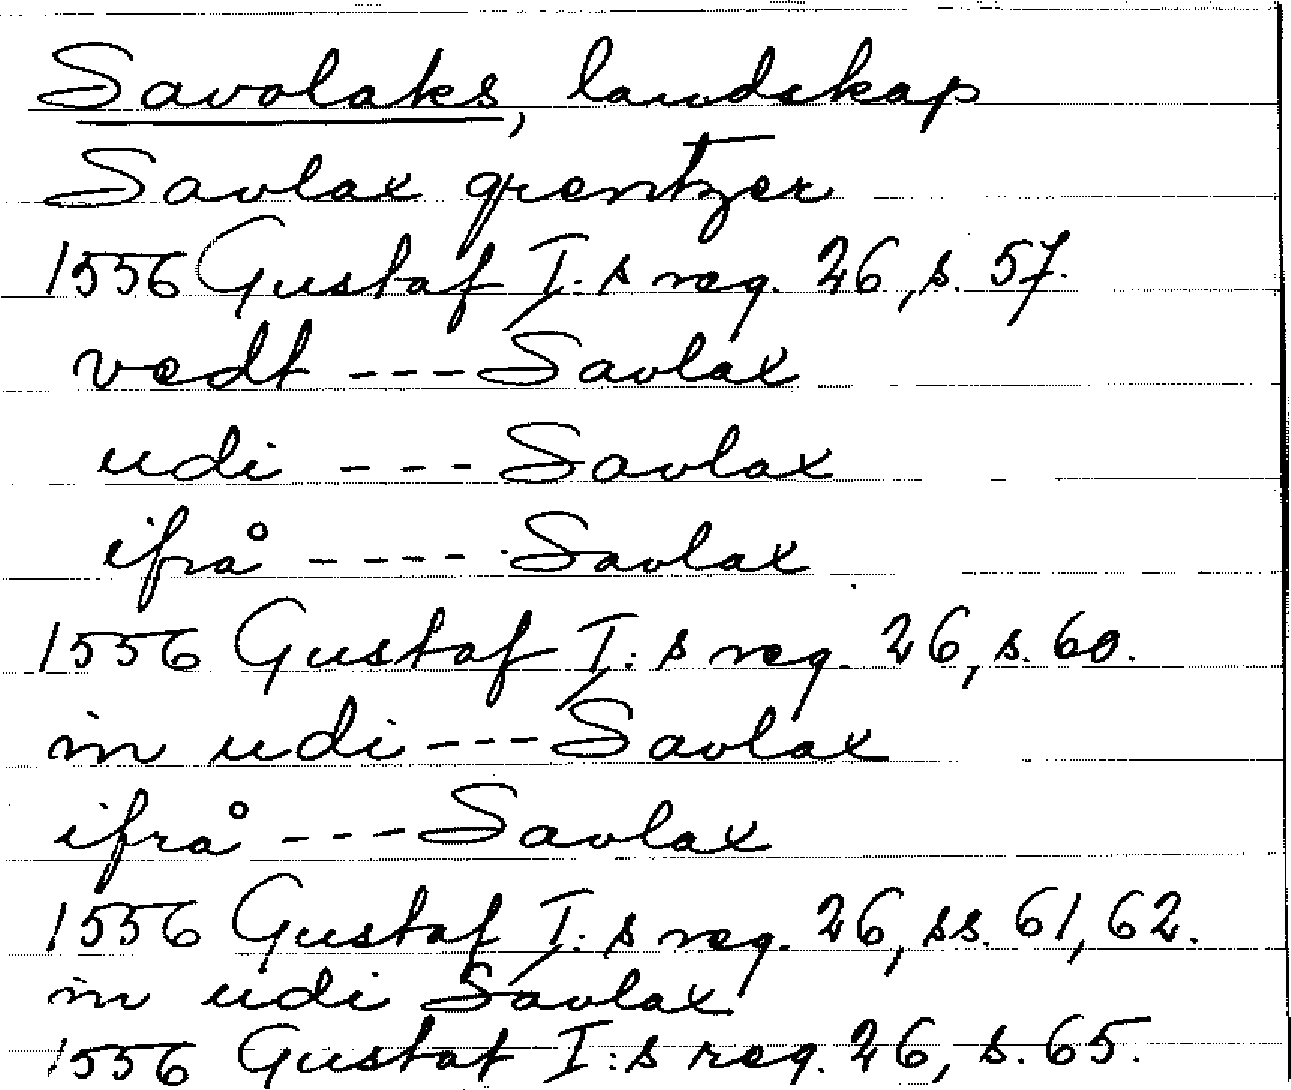 Savolaks, landskap
Savlax grentzer
1556 Gustaf I:s reg. 26, s. 57.
vedt --- Savlax
udi --- Savlax
ifrå ---- Savlax
1556 Gustaf I:s reg. 26, s. 60.
in udi --- Savlax
ifrå --- Savlax
1556 Gustaf I:s reg. 26, ss. 61, 62.
in udi Savlax
1556 Gustaf I:s reg. 26, s. 65.